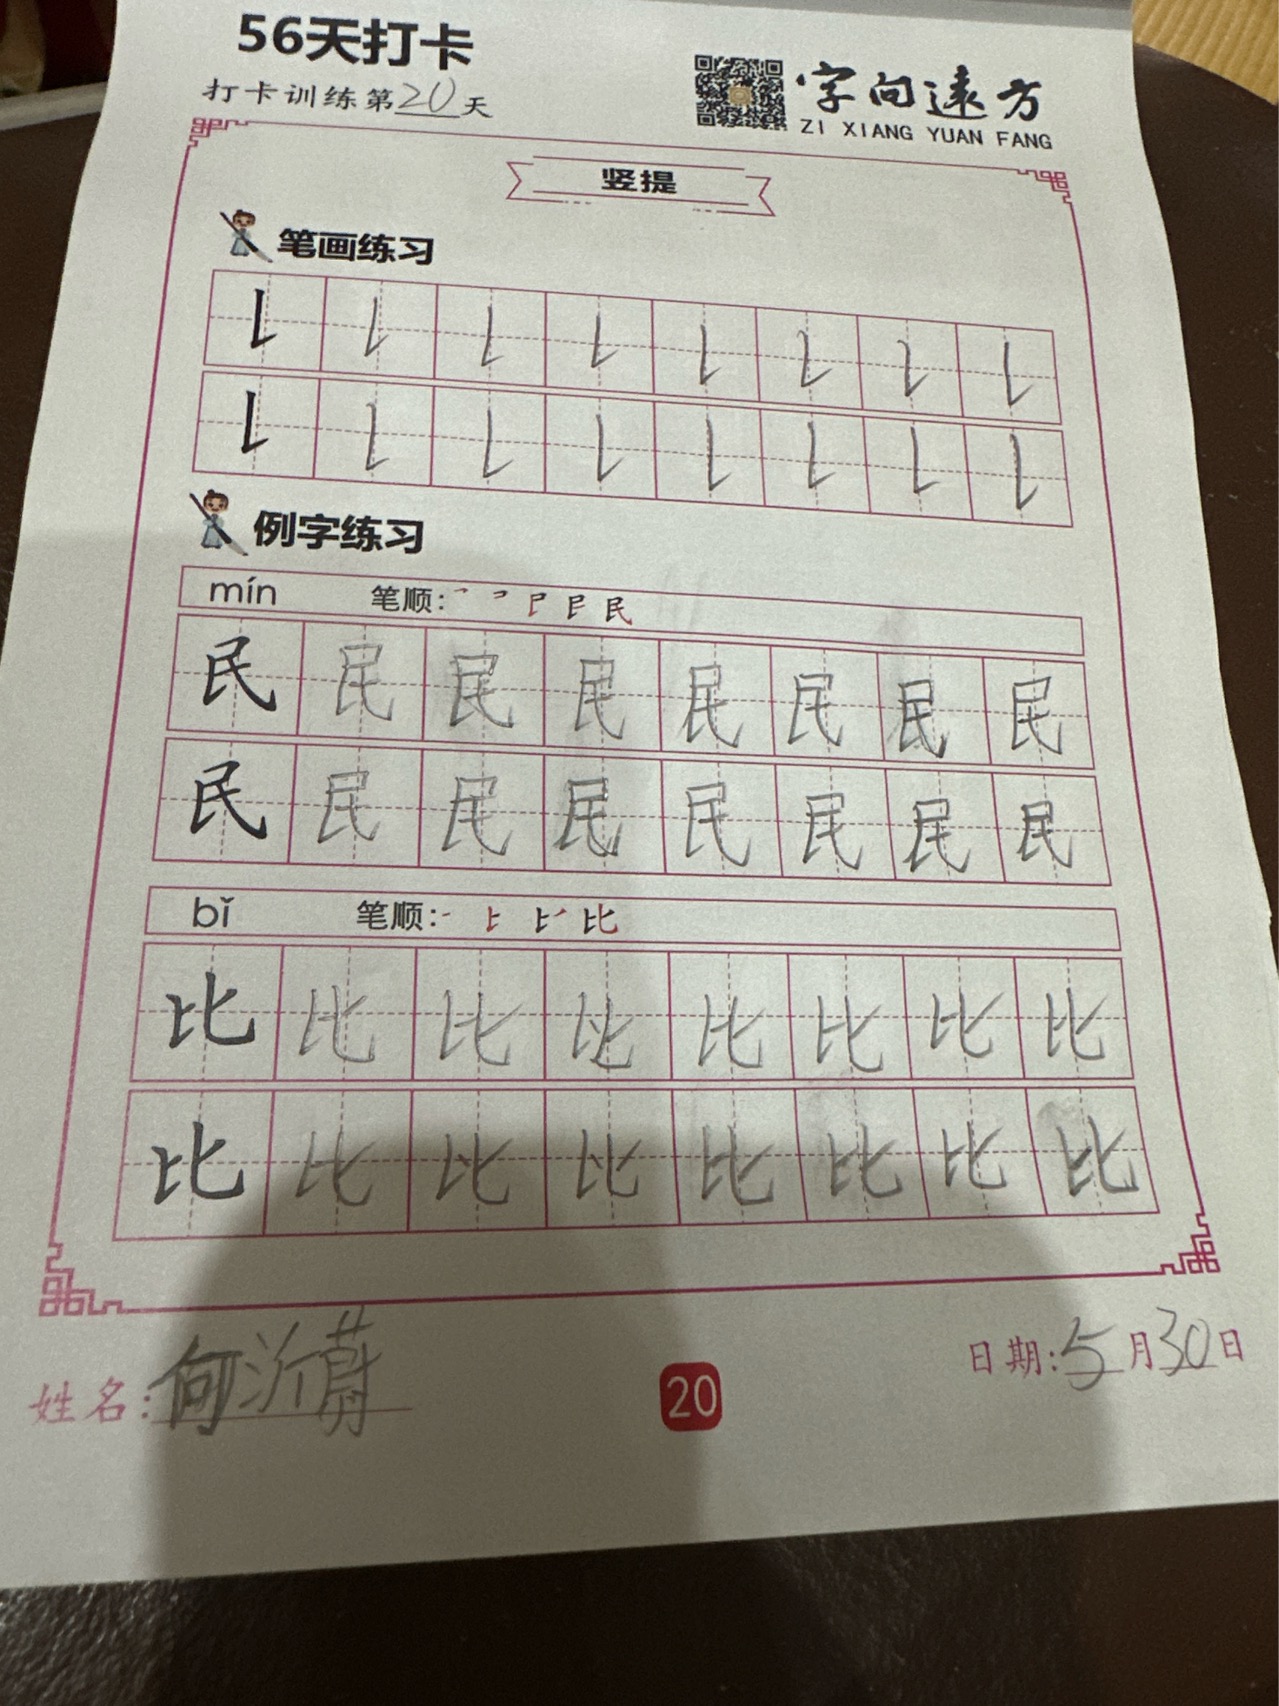 56天打卡
打卡训练第20天
字向遠方
ZI XIANG YUAN FANG
竖提
笔画练习
例字练习
mín 笔顺:
民 民 民 民 民 民 民 民
民 民 民 民 民 民 民 民
bǐ 笔顺:
比 比 比 比 比 比 比 比
比 比 比 比 比 比 比 比
姓名:何沂蔚
20
日期:5月30日